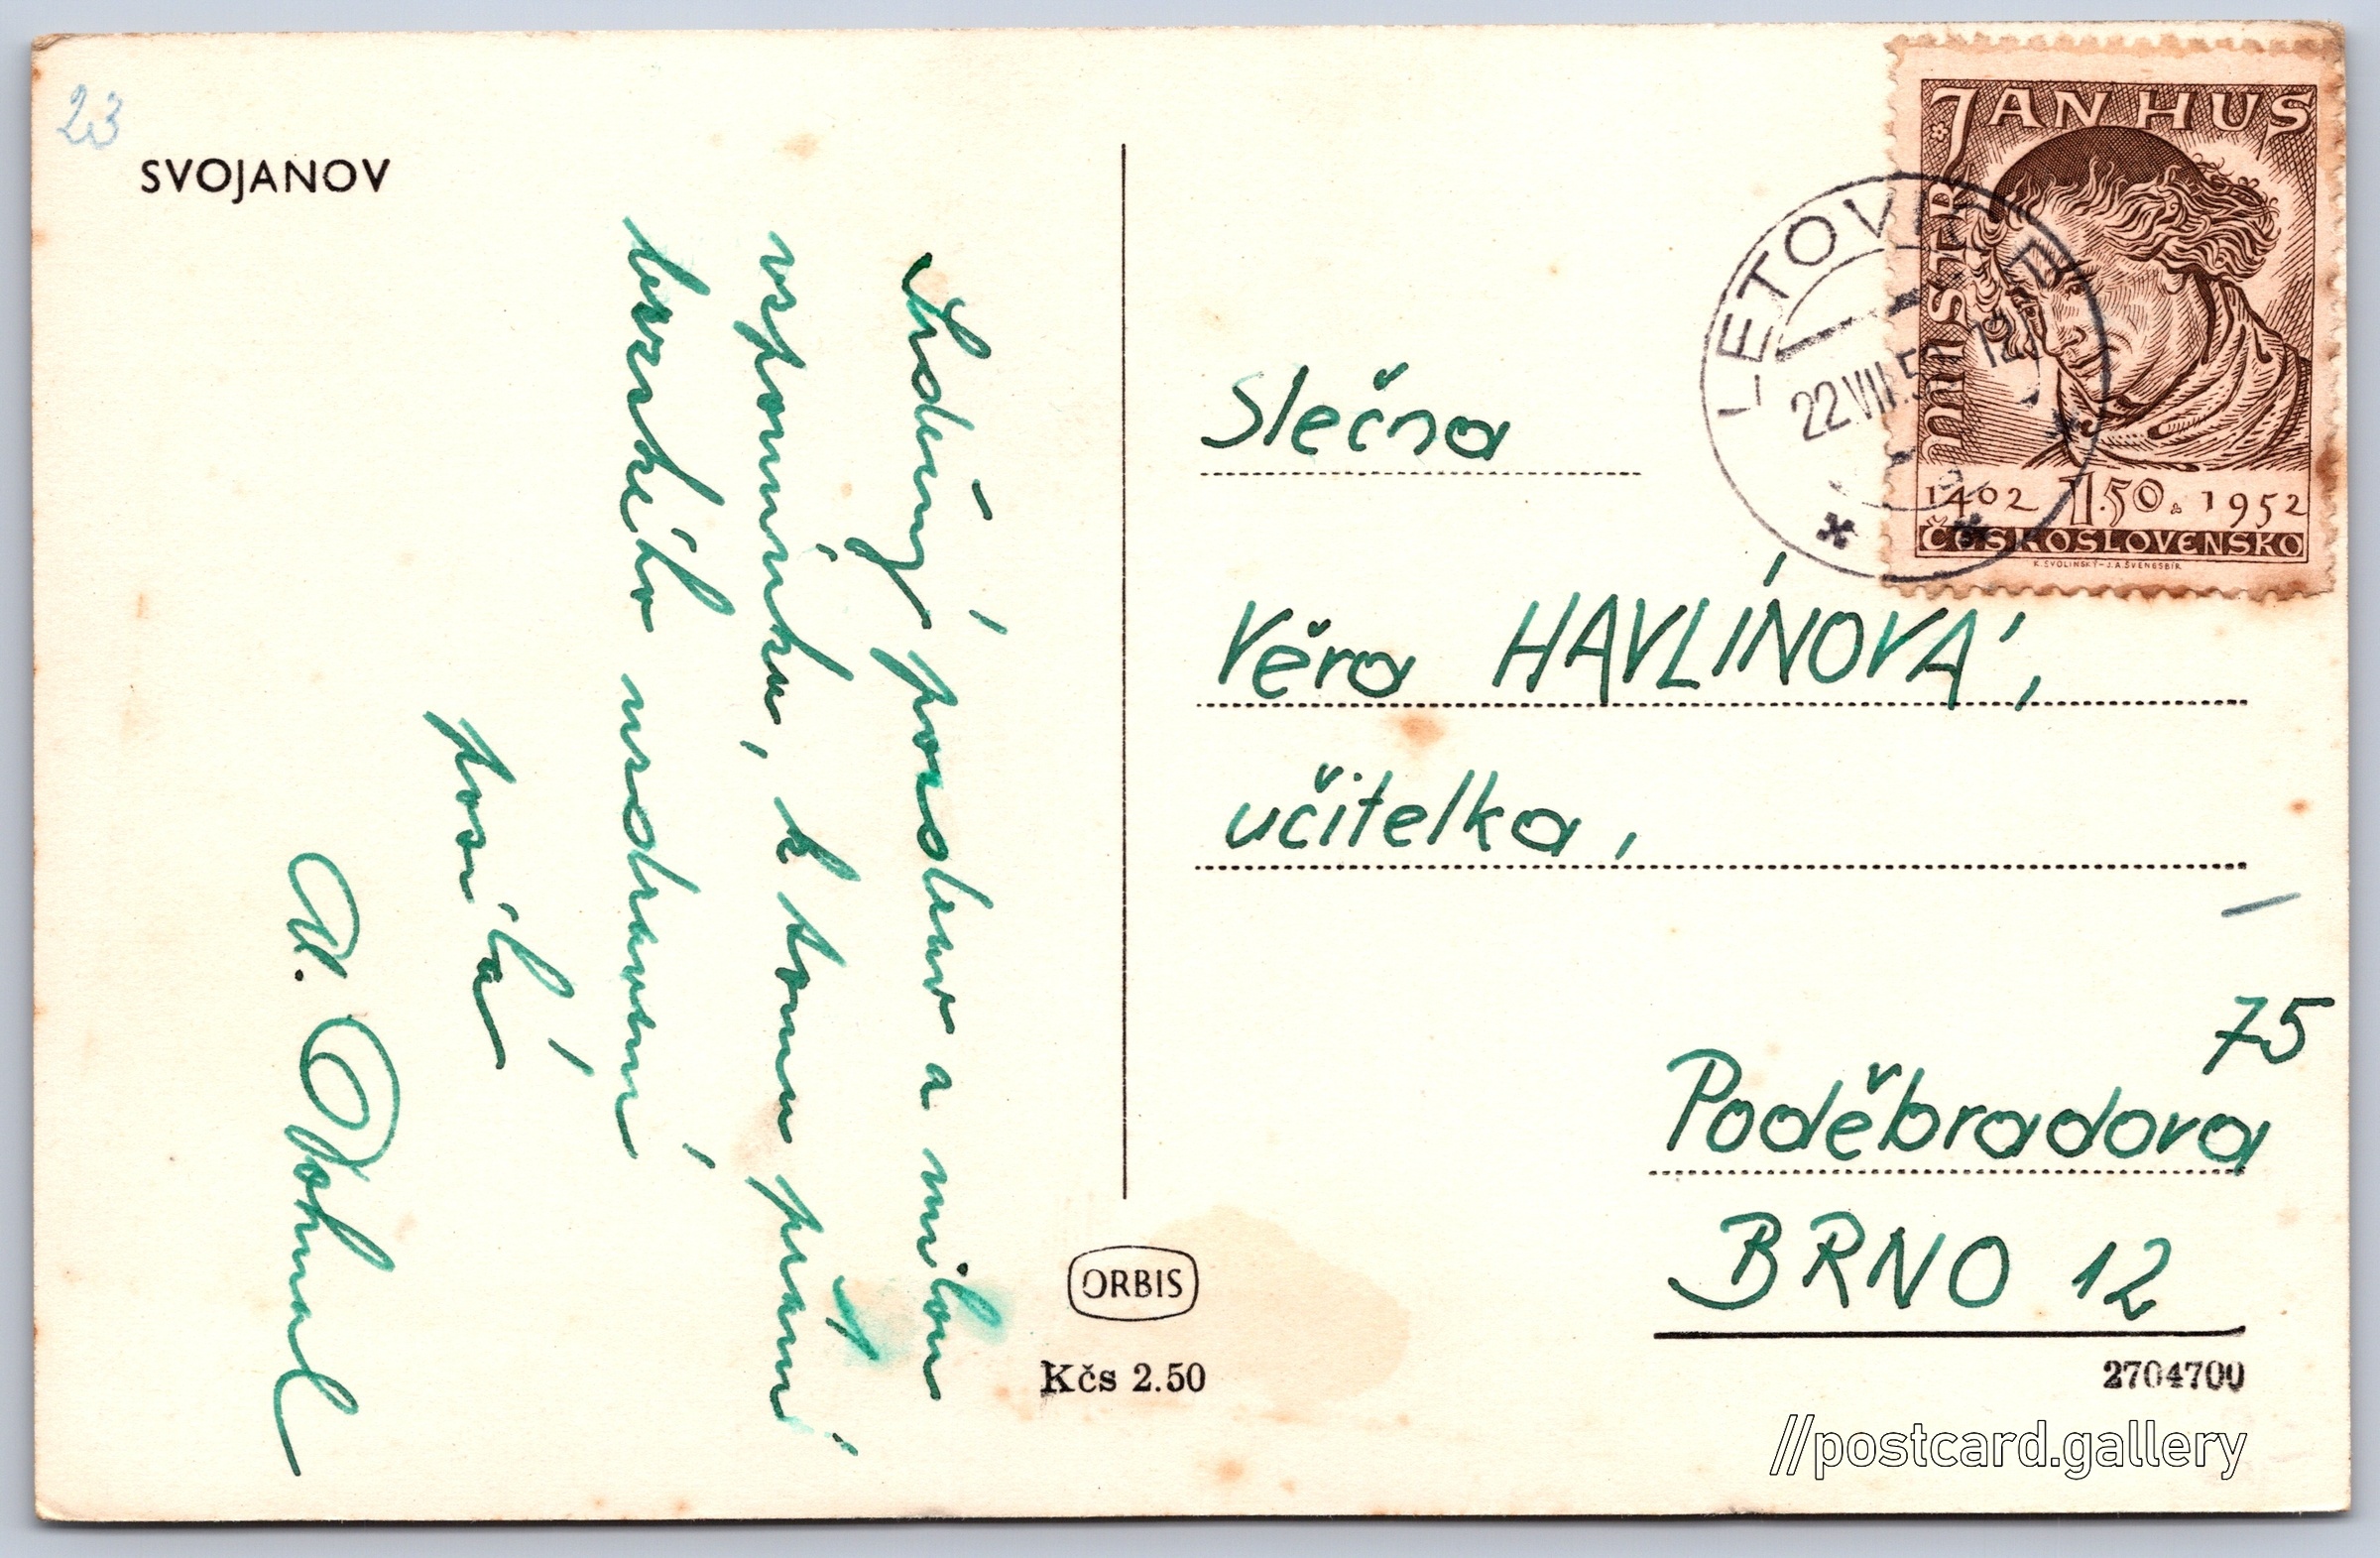 23
SVOJANOV
Srdečný pozdrav a milou
vzpomínku, k tomu přání
brzského uzdravení
posílá
Dohnal
MISTR JAN HUS
1402 1.50 1952
ČESKOSLOVENSKO
K. SVOLINSKÝ - J.A. ŠVENGSBÍR
LETOVICE
22.VII.5 12
Slečna
Věra HAVLÍNOVÁ,
učitelka,
75
Poděbradova
BRNO 12
ORBIS
Kčs 2.50
2704700
//postcard.gallery